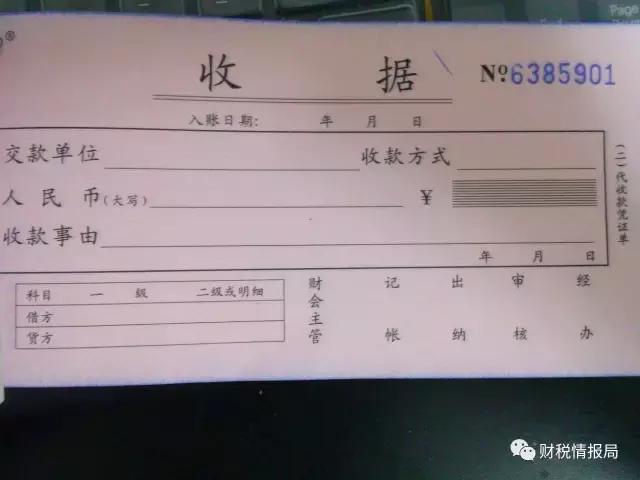 Page
收 据 №6385901
入账日期: 年 月 日
交款单位 收款方式
人民币(大写) ¥
收款事由
年 月 日
(二)代收款凭证单
科目 一级 二级或明细
借方
贷方
财会主管 记帐 出纳 审核 经办
财税情报局